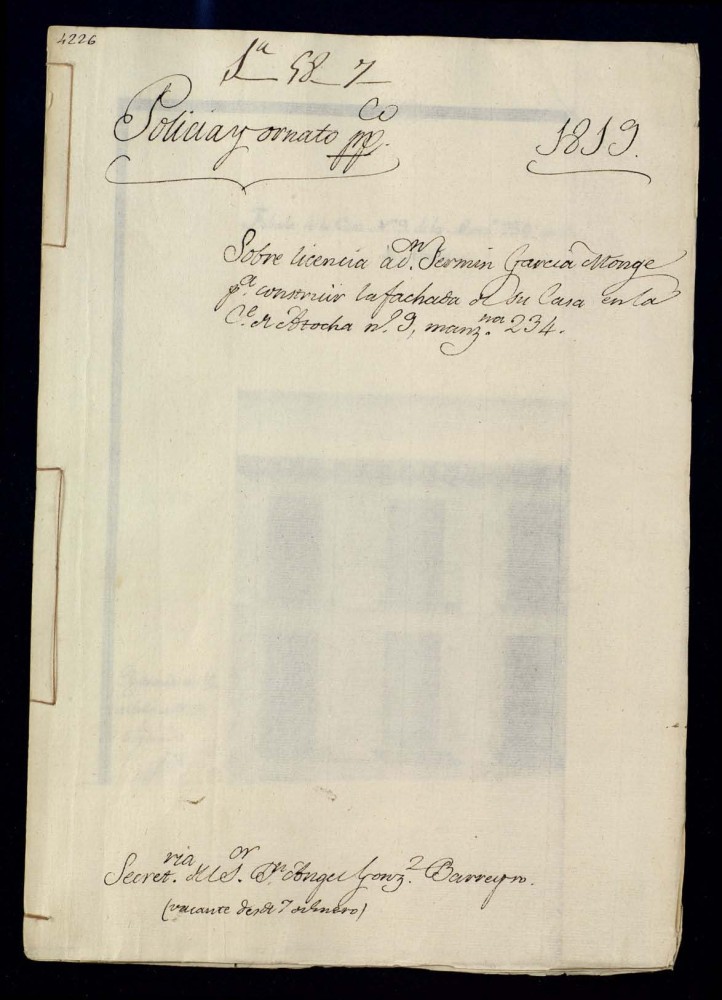 4226
1ª 58 7
Policia y ornato pp.co 1819.
Sobre licencia a dn. Fermin Garcia Monge
pª. construir la fachada de su Casa en la
Ce. de Atocha nº. 9, manzna. 234.
Secretria. del Sor. Dn Angel Gonzz. Barreyro.
(vacante desde 7 de Enero)